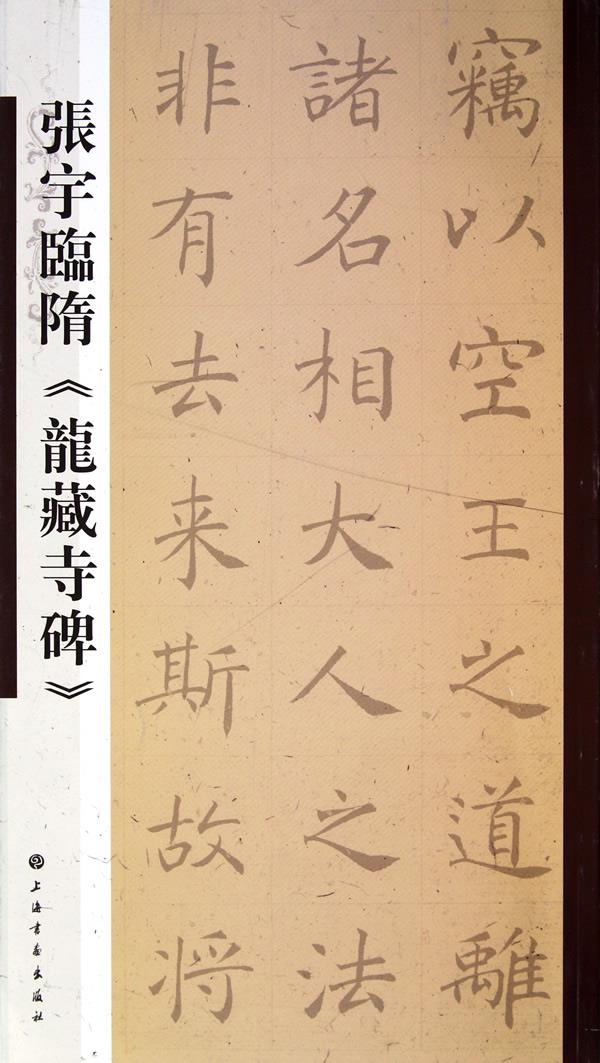 竊以空王之道離
諸名相大人之法
非有去来斯故将
張宇臨隋《龍藏寺碑》
上海書畫出版社